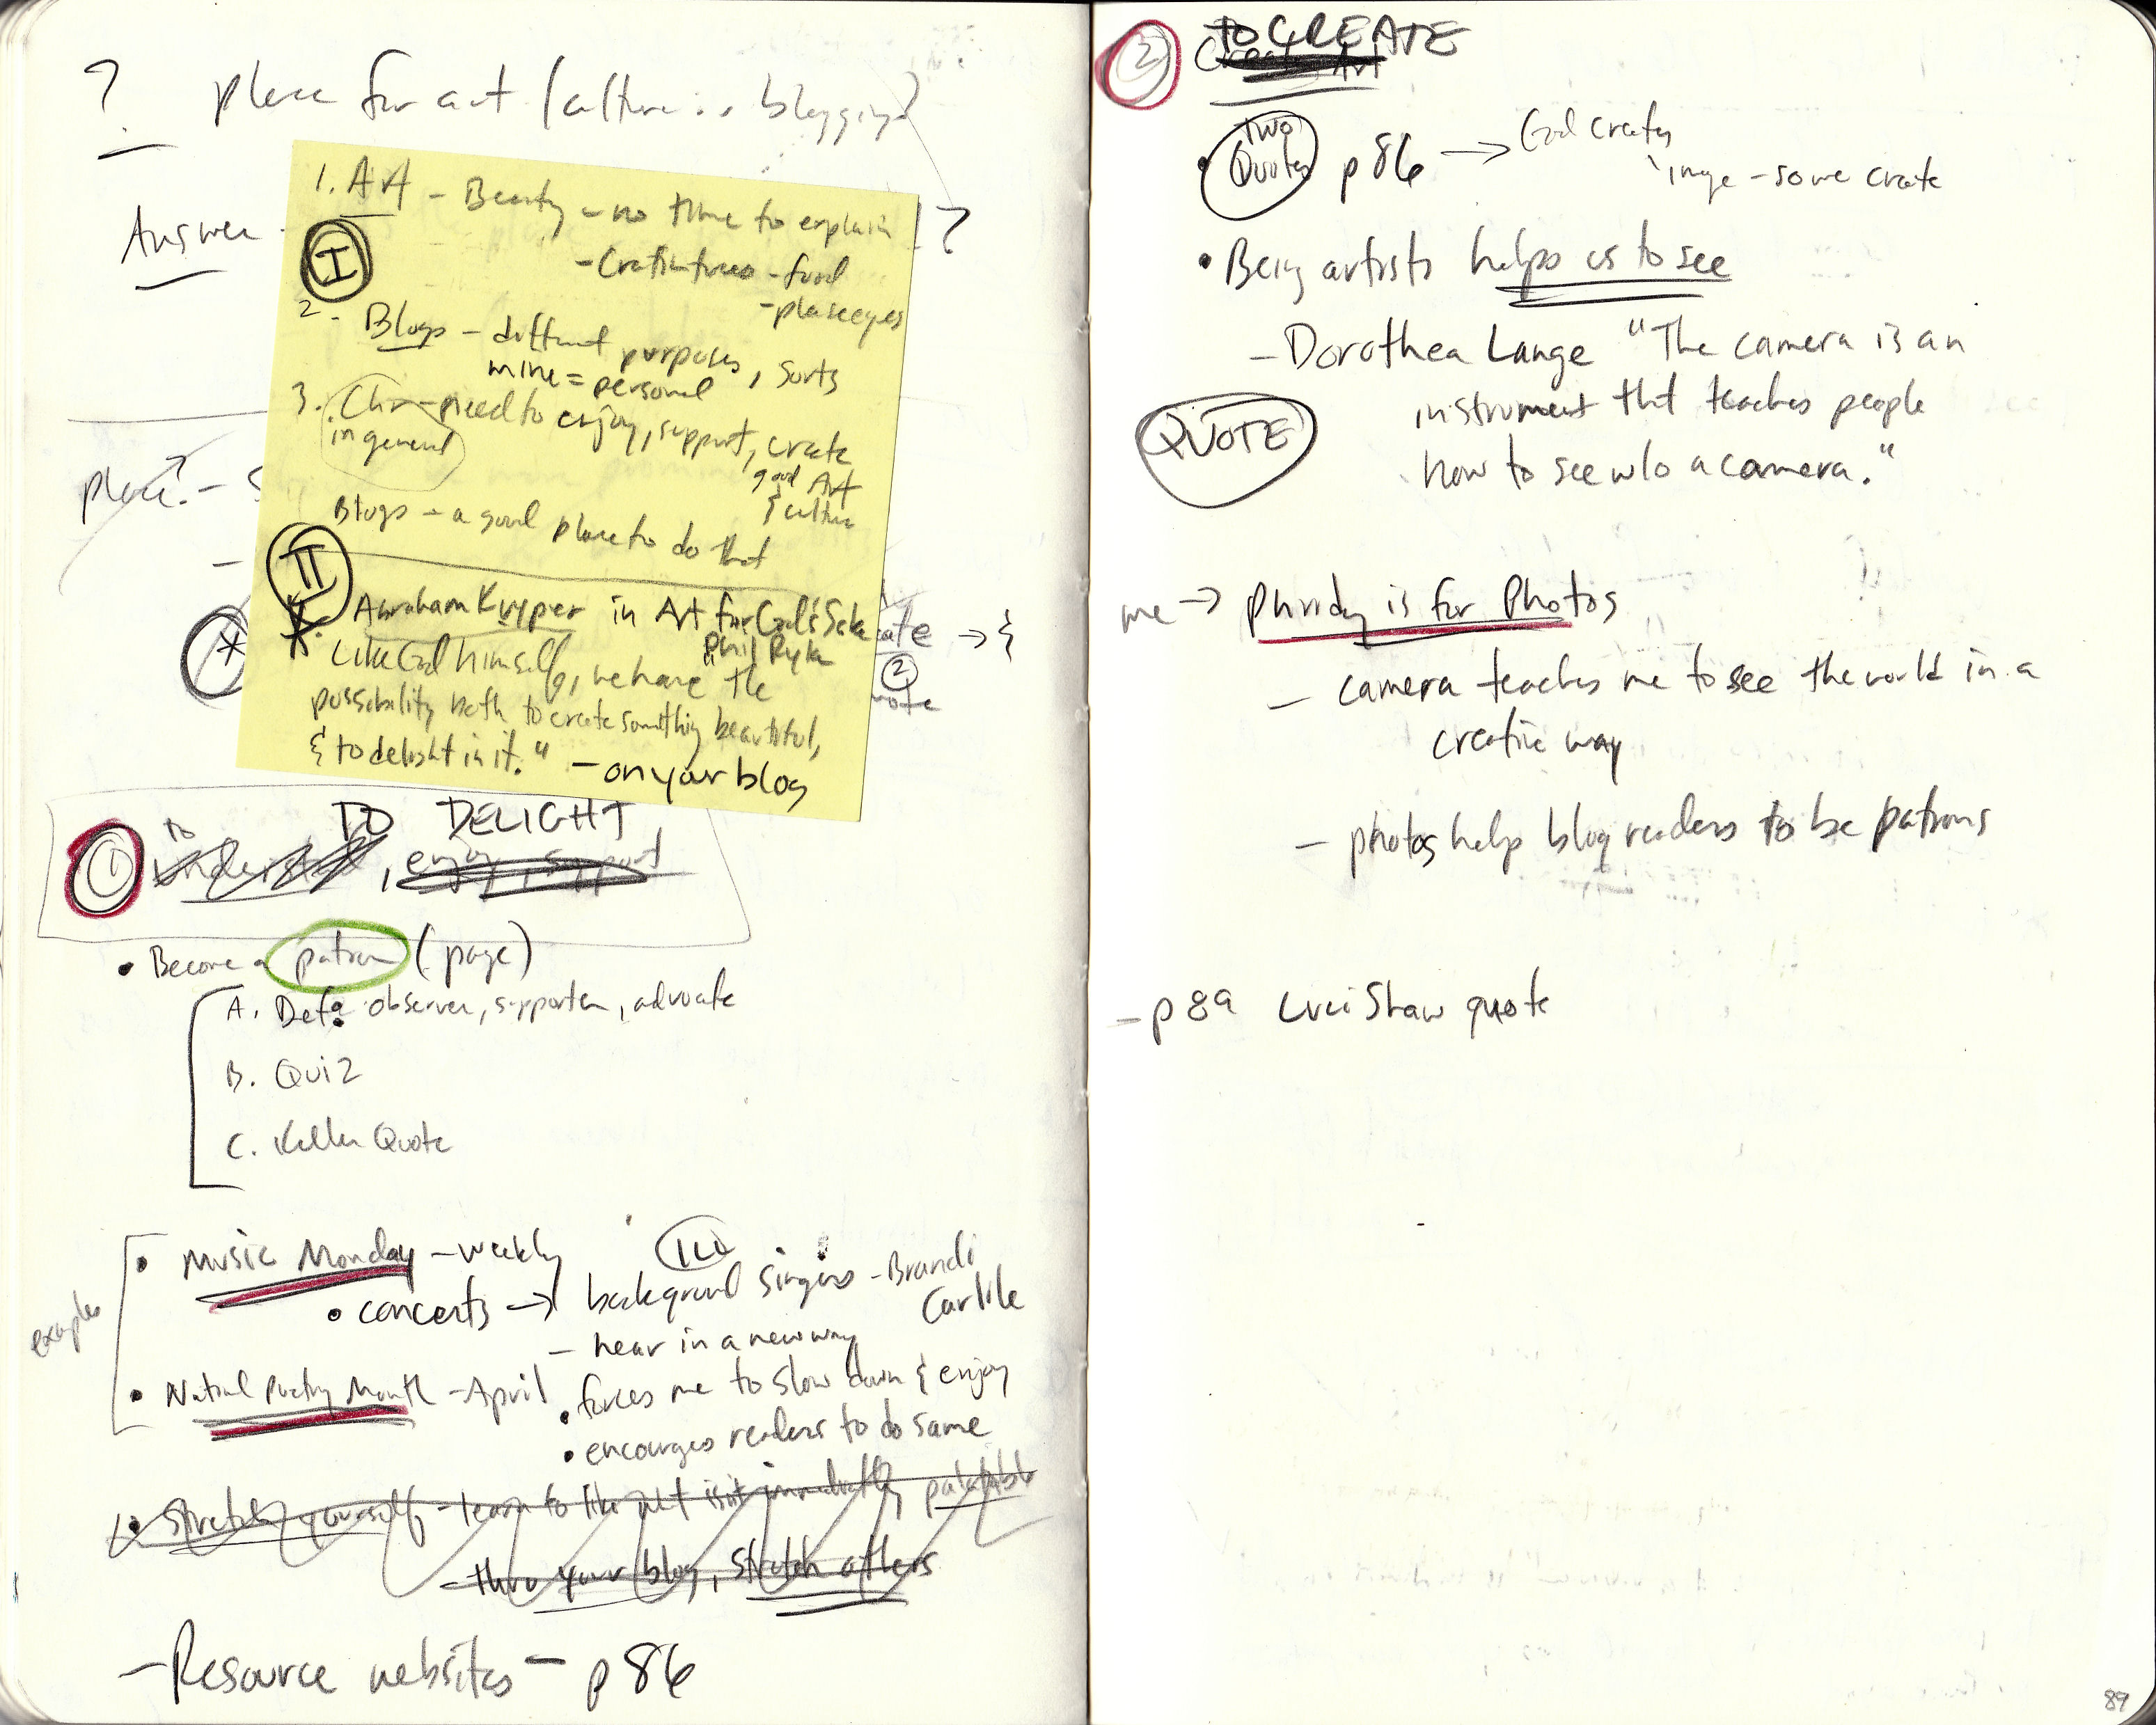 ? place for art / culture in blogging?
Answer ?
1. Art - Beauty - no time to explain
- Creativeness - food
- please eyes
I
2. Blogs - different purposes, sorts
mine = personal
3. Chr - need to enjoy, support, create
in general
good Art
& culture
Blogs - a good place to do that
II
Abraham Kuyper in Art for God's Sake
Phil Ryken
"Like God himself, we have the
possibility both to create something beautiful,
& to delight in it." - on your blog
place? -
*
ate → {
②
TO DELIGHT
① to
, enjoy, support
• Become a patron (page)
A. Def: observer, supporter, advocate
B. Quiz
C. Keller Quote
examples
• Music Monday - weekly
• concerts → background singers - Brandi
Carlile
- hear in a new way
• National Poetry Month - April
• forces me to slow down & enjoy
• encourages readers to do same
• Stretch yourself - learn to like what isn't immediately palatable
- thru your blog, stretch others
- Resource websites - p 86
② TO CREATE
Create Art
• Two Quotes p 86 → God creates
image - so we create
• Being artists helps us to see
- Dorothea Lange "The camera is an
instrument that teaches people
how to see w/o a camera."
QUOTE
me → Phriday is for Photos
- camera teaches me to see the world in a
creative way
- photos help blog readers to be patrons
- p 89 Luci Shaw quote
89